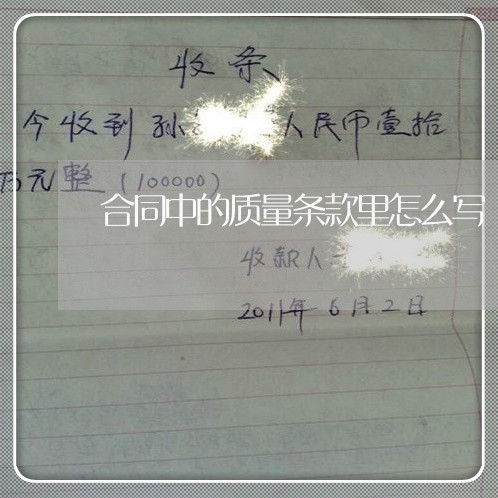 收条
今收到孙 人民币壹拾
万元整（100000）
合同中的质量条款里怎么写
收款人
2011年6月2日